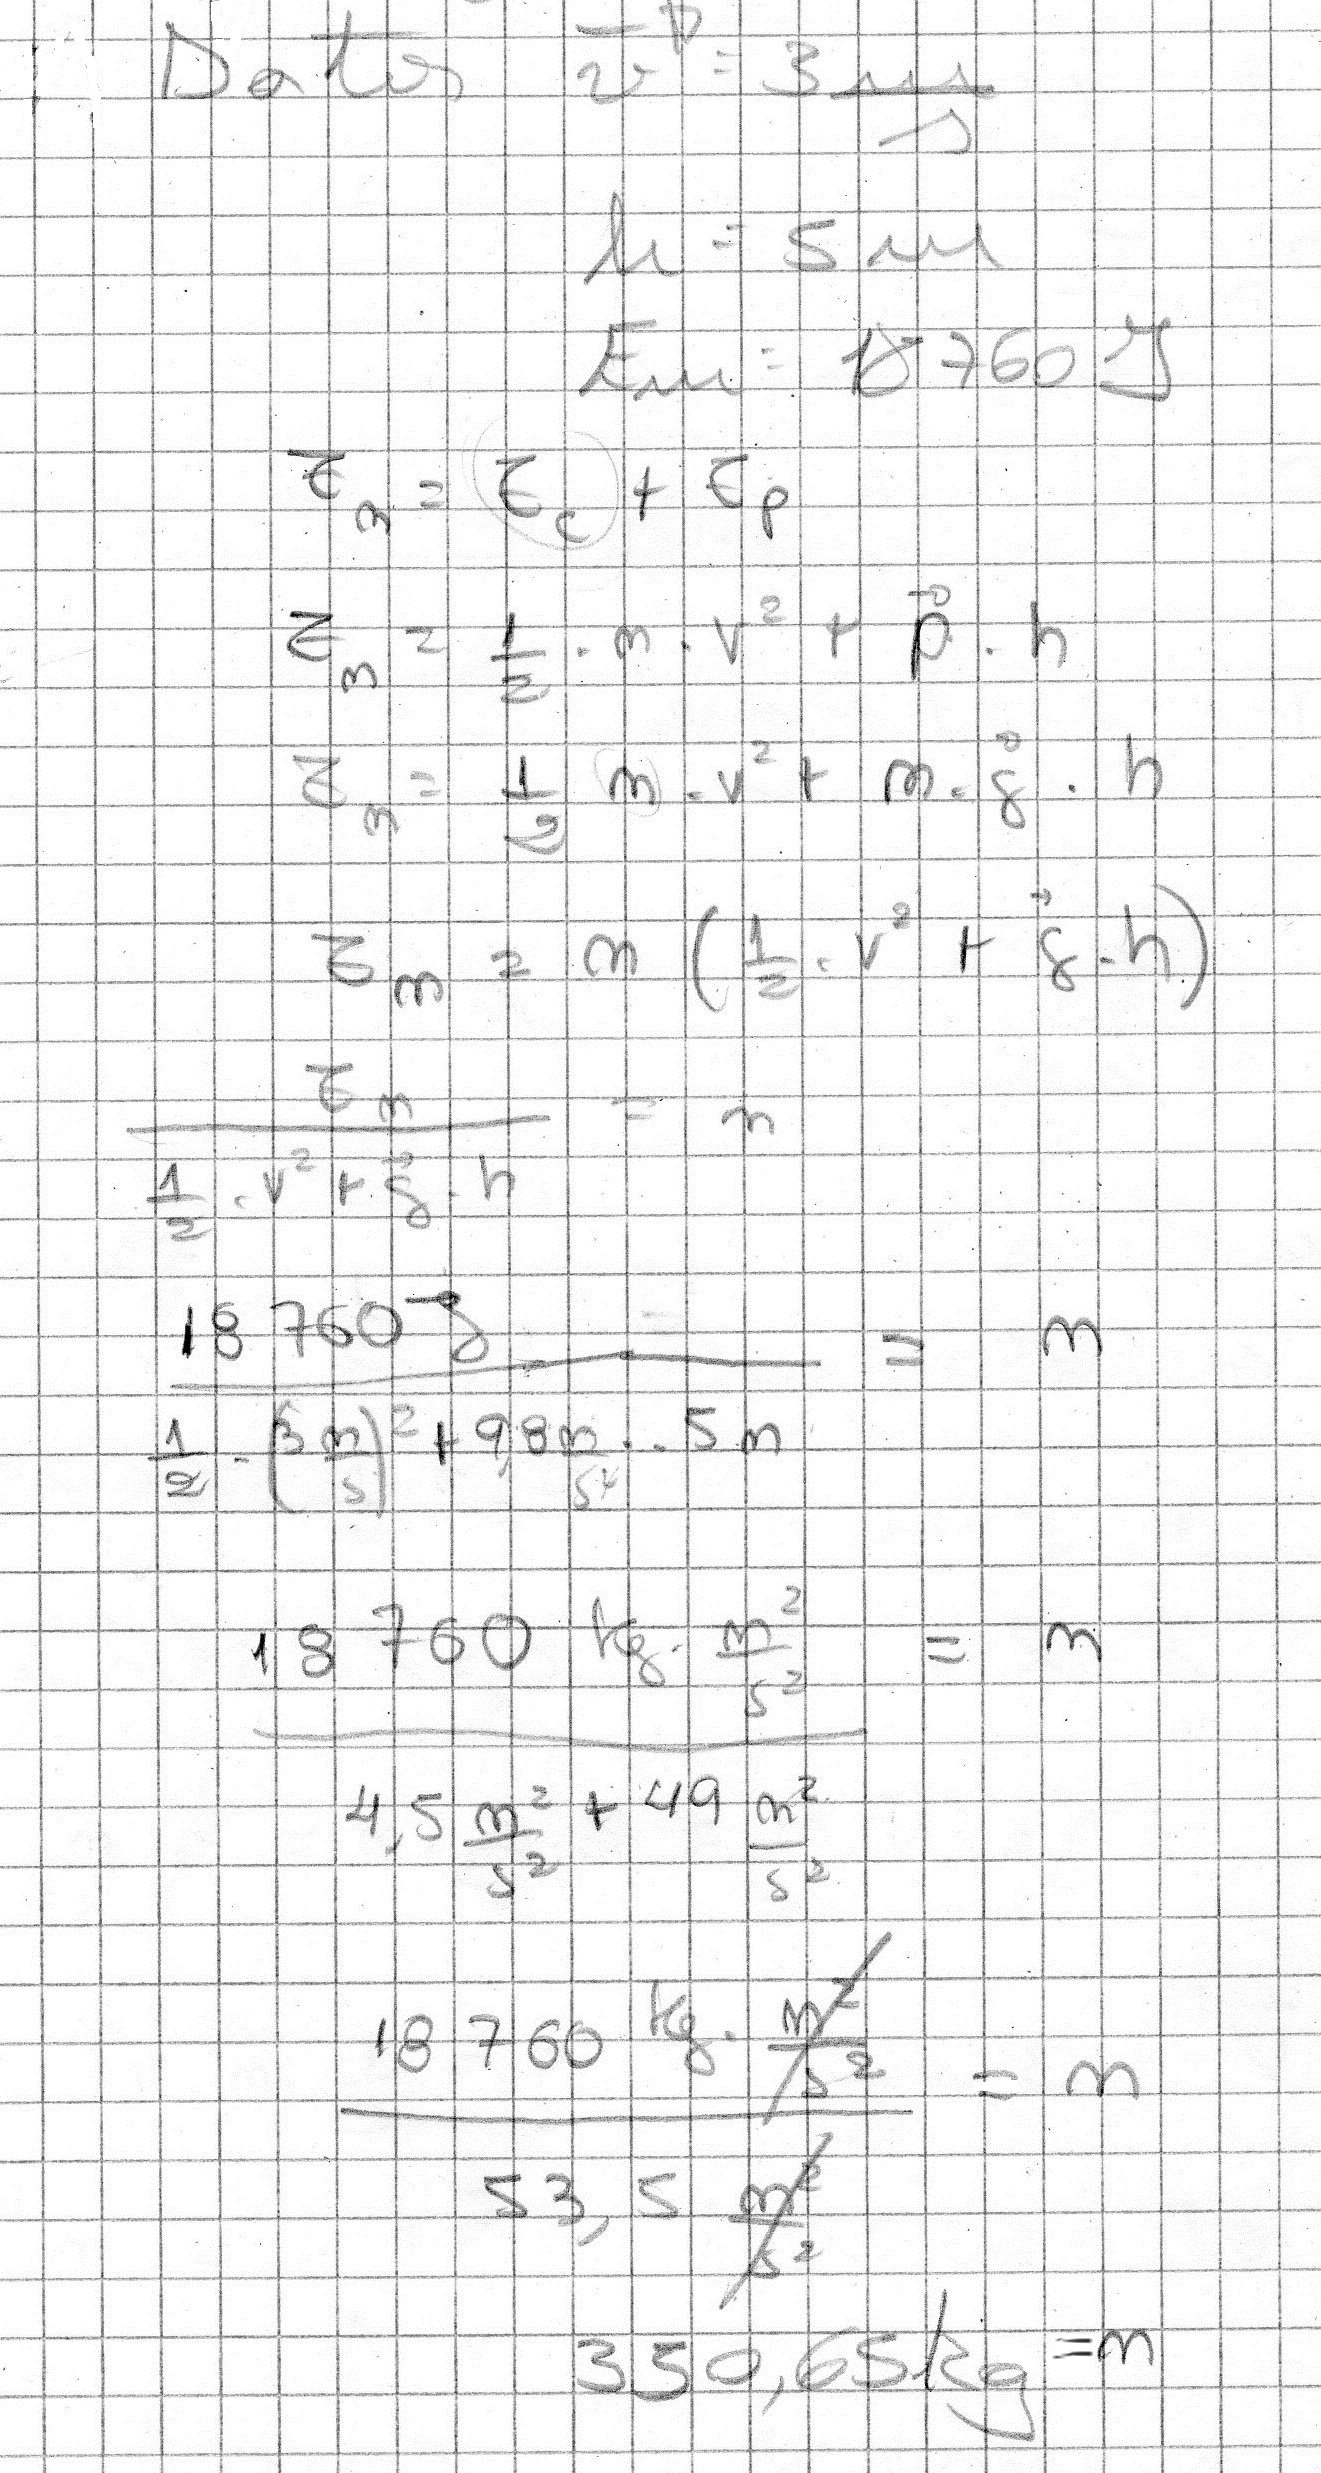 Datos v⃗ = 3 m/s
h = 5 m
Em = 18760 J
Em = Ec + Ep
Em = 1/2 · m · v² + p⃗ · h
Em = 1/2 m · v² + m · g⃗ · h
Em = m (1/2 · v² + g⃗ · h)
Em / (1/2 · v² + g⃗ · h) = m
18760 J / (1/2 · (3 m/s)² + 9,8 m/s² · 5 m) = m
18760 kg · m²/s² / (4,5 m²/s² + 49 m²/s²) = m
18760 kg · m²/s² / 53,5 m²/s² = m
350,65 kg = m